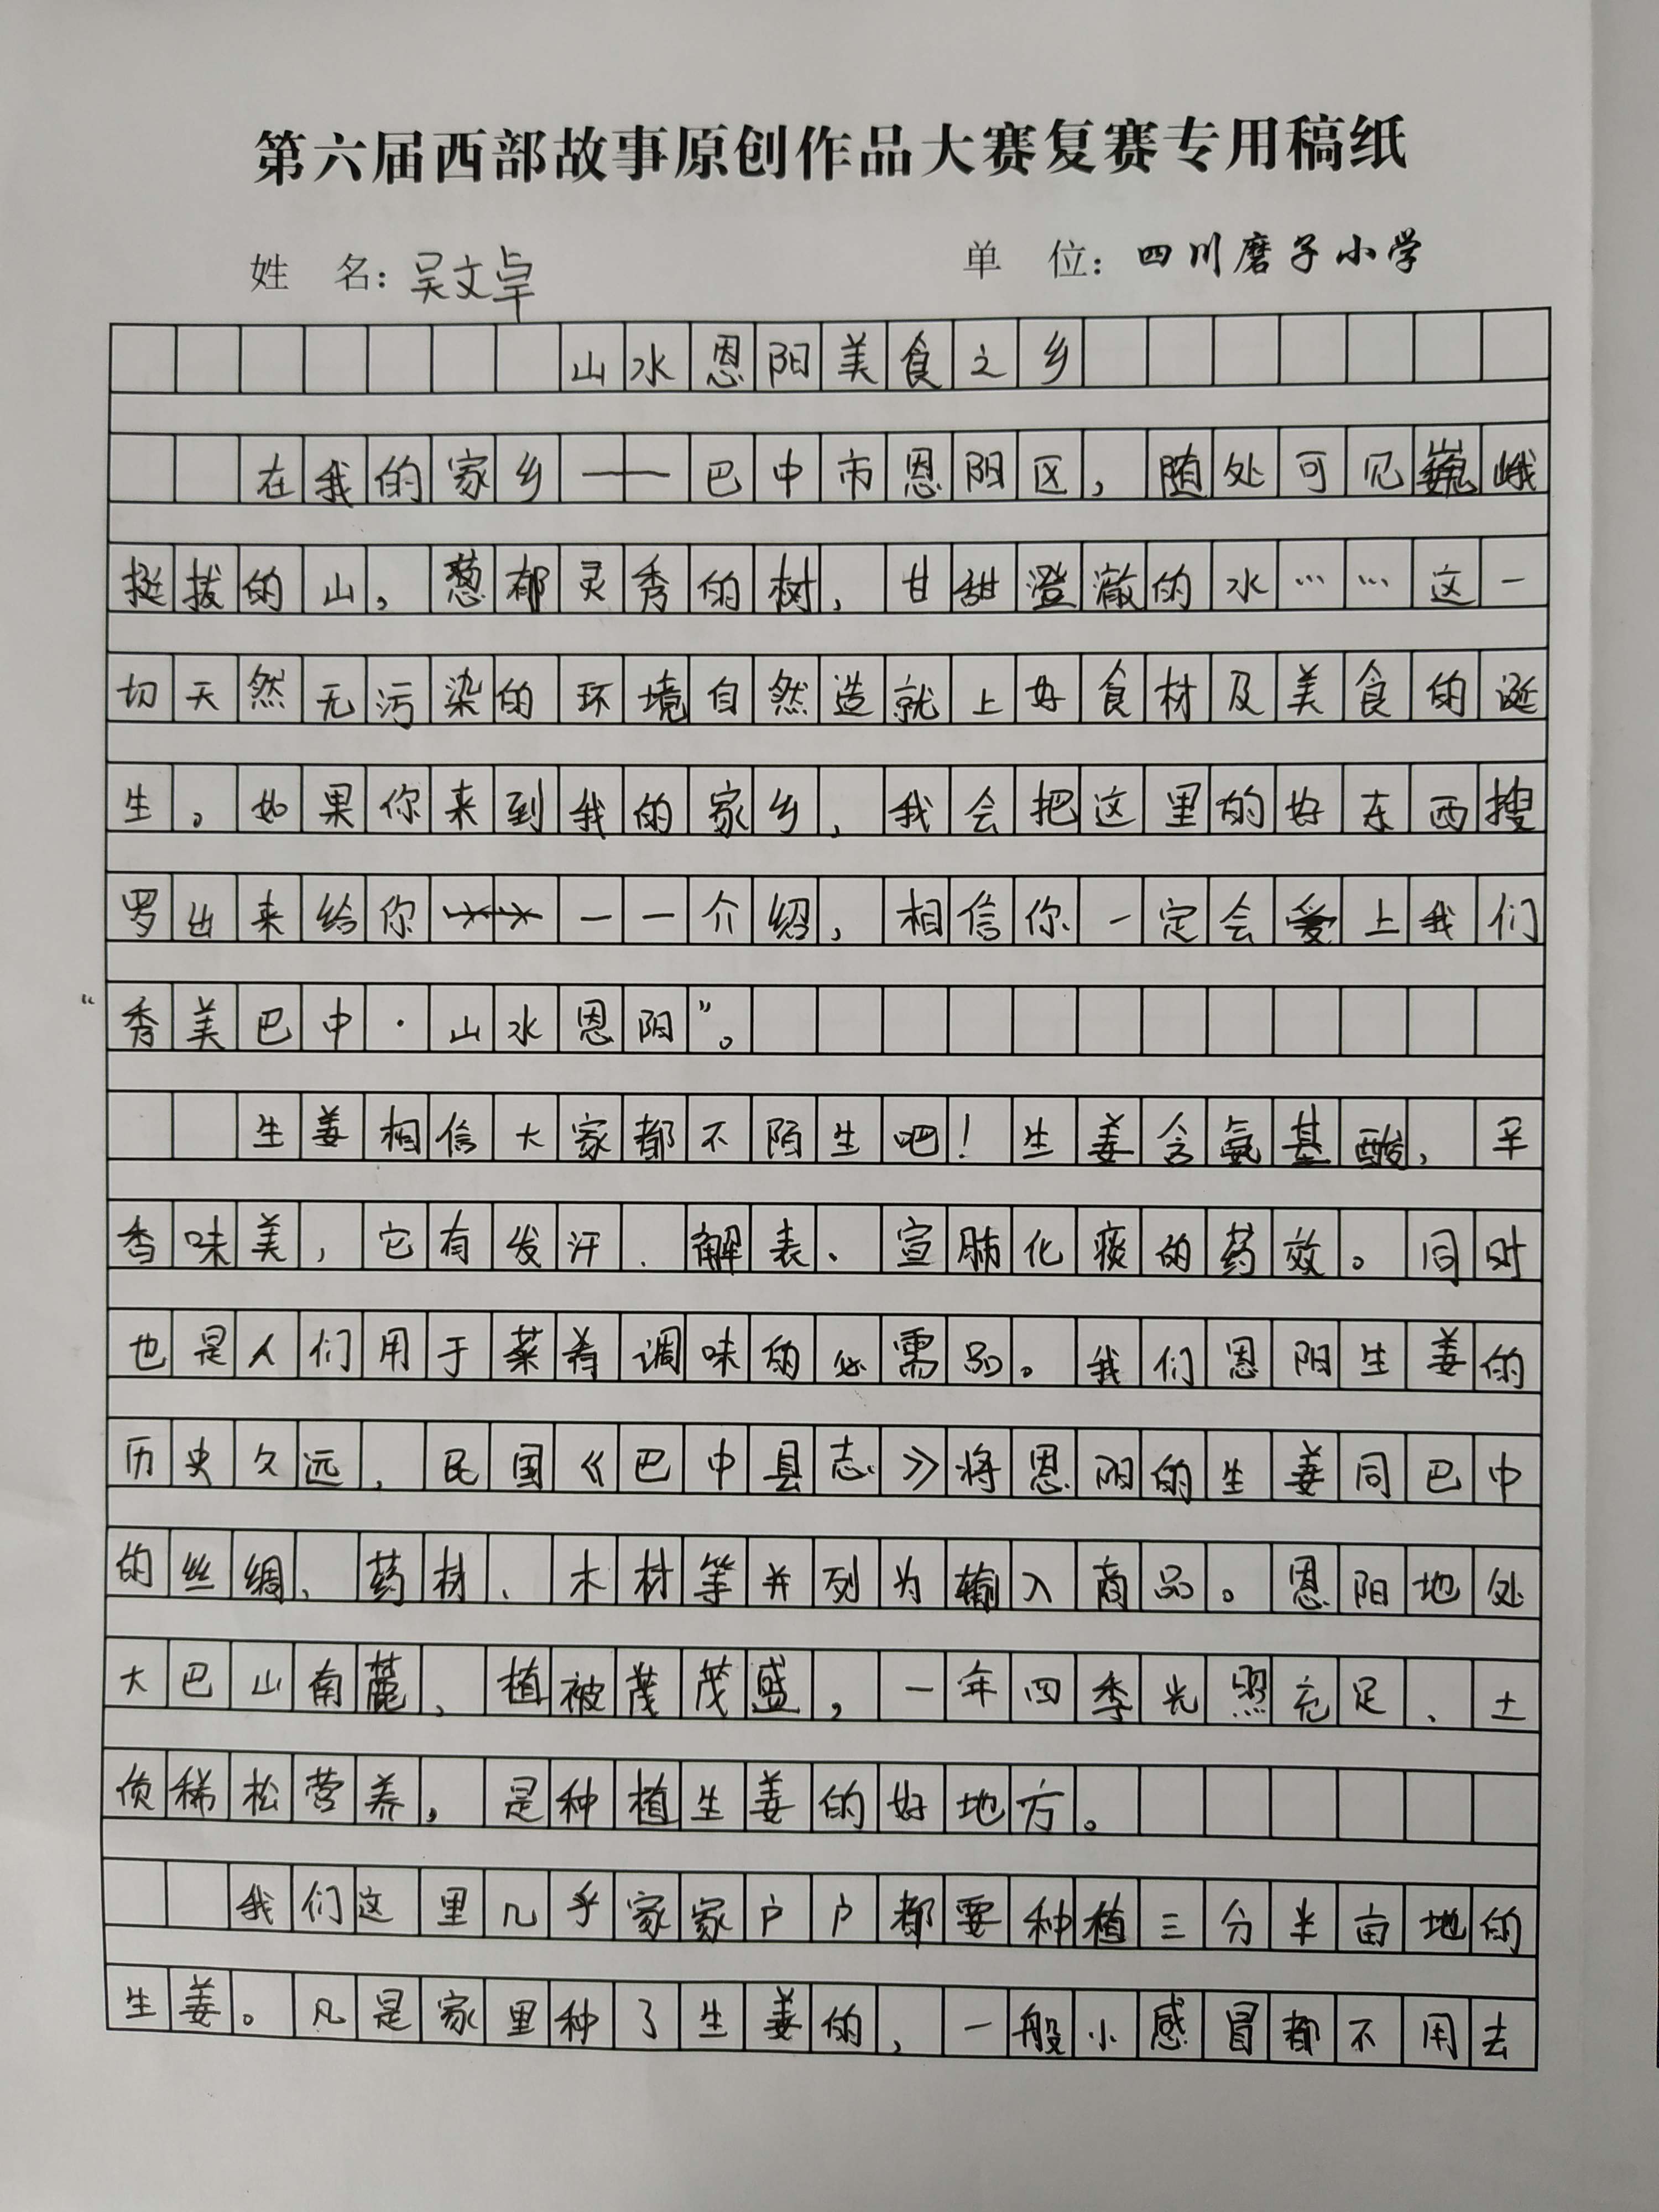 第六届西部故事原创作品大赛复赛专用稿纸
姓 名：吴文卓 单 位：四川磨子小学
山水恩阳美食之乡
在我的家乡——巴中市恩阳区，随处可见巍峨
挺拔的山，葱郁灵秀的树，甘甜澄澈的水……这一
切天然无污染的环境自然造就上好食材及美食的诞
生。如果你来到我的家乡，我会把这里的好东西搜
罗出来给你一一介绍，相信你一定会爱上我们
“秀美巴中·山水恩阳”。
生姜相信大家都不陌生吧！生姜含氨基酸，辛
香味美，它有发汗、解表、宣肺化痰的药效。同时
也是人们用于菜肴调味的必需品。我们恩阳生姜的
历史久远，民国《巴中县志》将恩阳的生姜同巴中
的丝绸、药材、木材等并列为输入商品。恩阳地处
大巴山南麓，植被茂茂盛，一年四季光照充足、土
质稀松营养，是种植生姜的好地方。
我们这里几乎家家户户都要种植三分半亩地的
生姜。凡是家里种了生姜的，一般小感冒都不用去